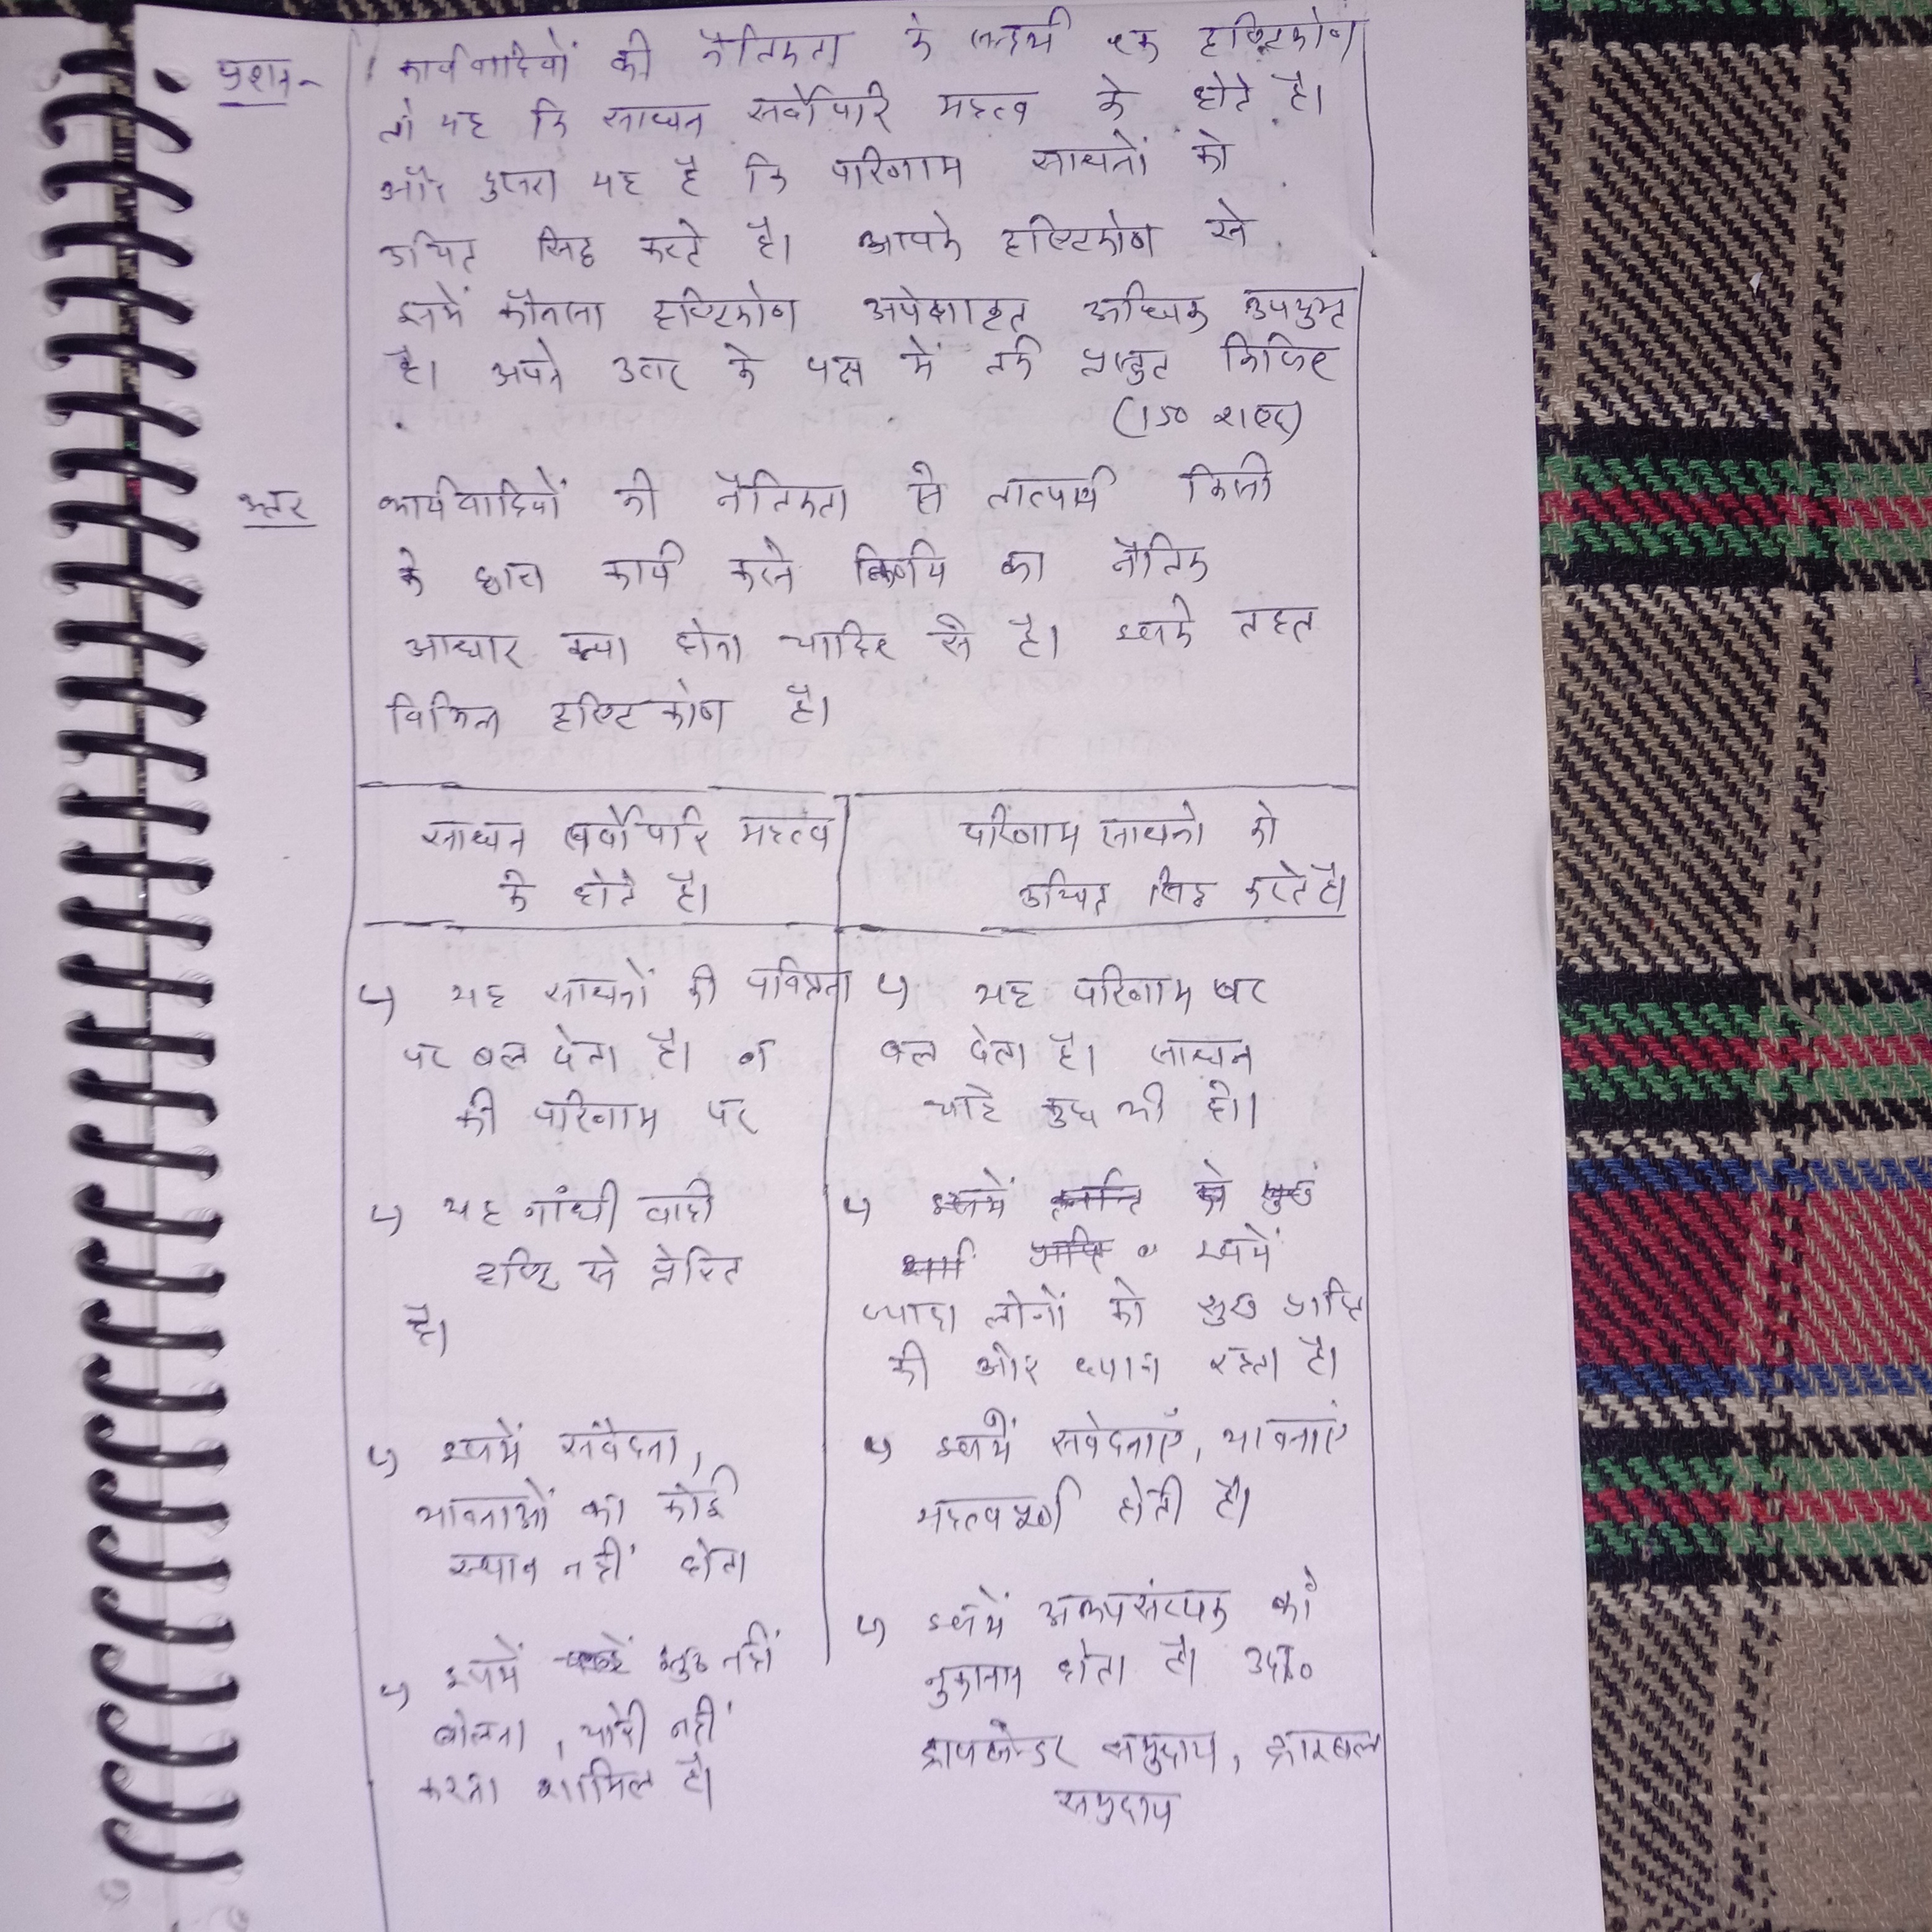 प्रशन-
कार्यवाहियों की नैतिकता के सन्दर्भ एक दृष्टिकोण
तो यह कि साधन सर्वोपरि महत्व के होते है।
और दुसरा यह है कि परिणाम साधनों को
उचित सिद्ध करते है। आपके दृष्टिकोण से
इनमें कौनसा दृष्टिकोण अपेक्षाकृत अधिक उपयुक्त
है। अपने उत्तर के पक्ष में तर्क प्रस्तुत किजिए
(150 शब्द)
उत्तर
कार्यवाहियों की नैतिकता से तात्पर्य किसी
के द्वारा कार्य करने का नैतिक
आधार क्या होना चाहिए से है। इसके तहत
विभिन्न दृष्टिकोण है।
साधन सर्वोपरि महत्व
के होते है।
परिणाम साधनो को
उचित सिद्ध करते है।
यह साधनों की पवित्रता
पर बल देता है। न
की परिणाम पर
यह गांधी वादी
दृष्टि से प्रेरित
है।
इसमें संवेदना,
भावनाओं का कोई
स्थान नहीं होता
इसमें झुठ नहीं
बोलना, चोरी नहीं
करना शामिल है।
यह परिणाम पर
बल देता है। साधन
चाहे कुछ भी हो।
इसमें
ज्यादा लोगों को सुख प्राप्ति
की ओर ध्यान रहता है।
इसमें संवेदनाएँ, भावनाएं
महत्वपूर्ण होती है।
इसमें अल्पसंख्यक को
नुकसान होता है। उदा०
ट्रांसजेन्डर समुदाय, ट्राइबल
समुदाय